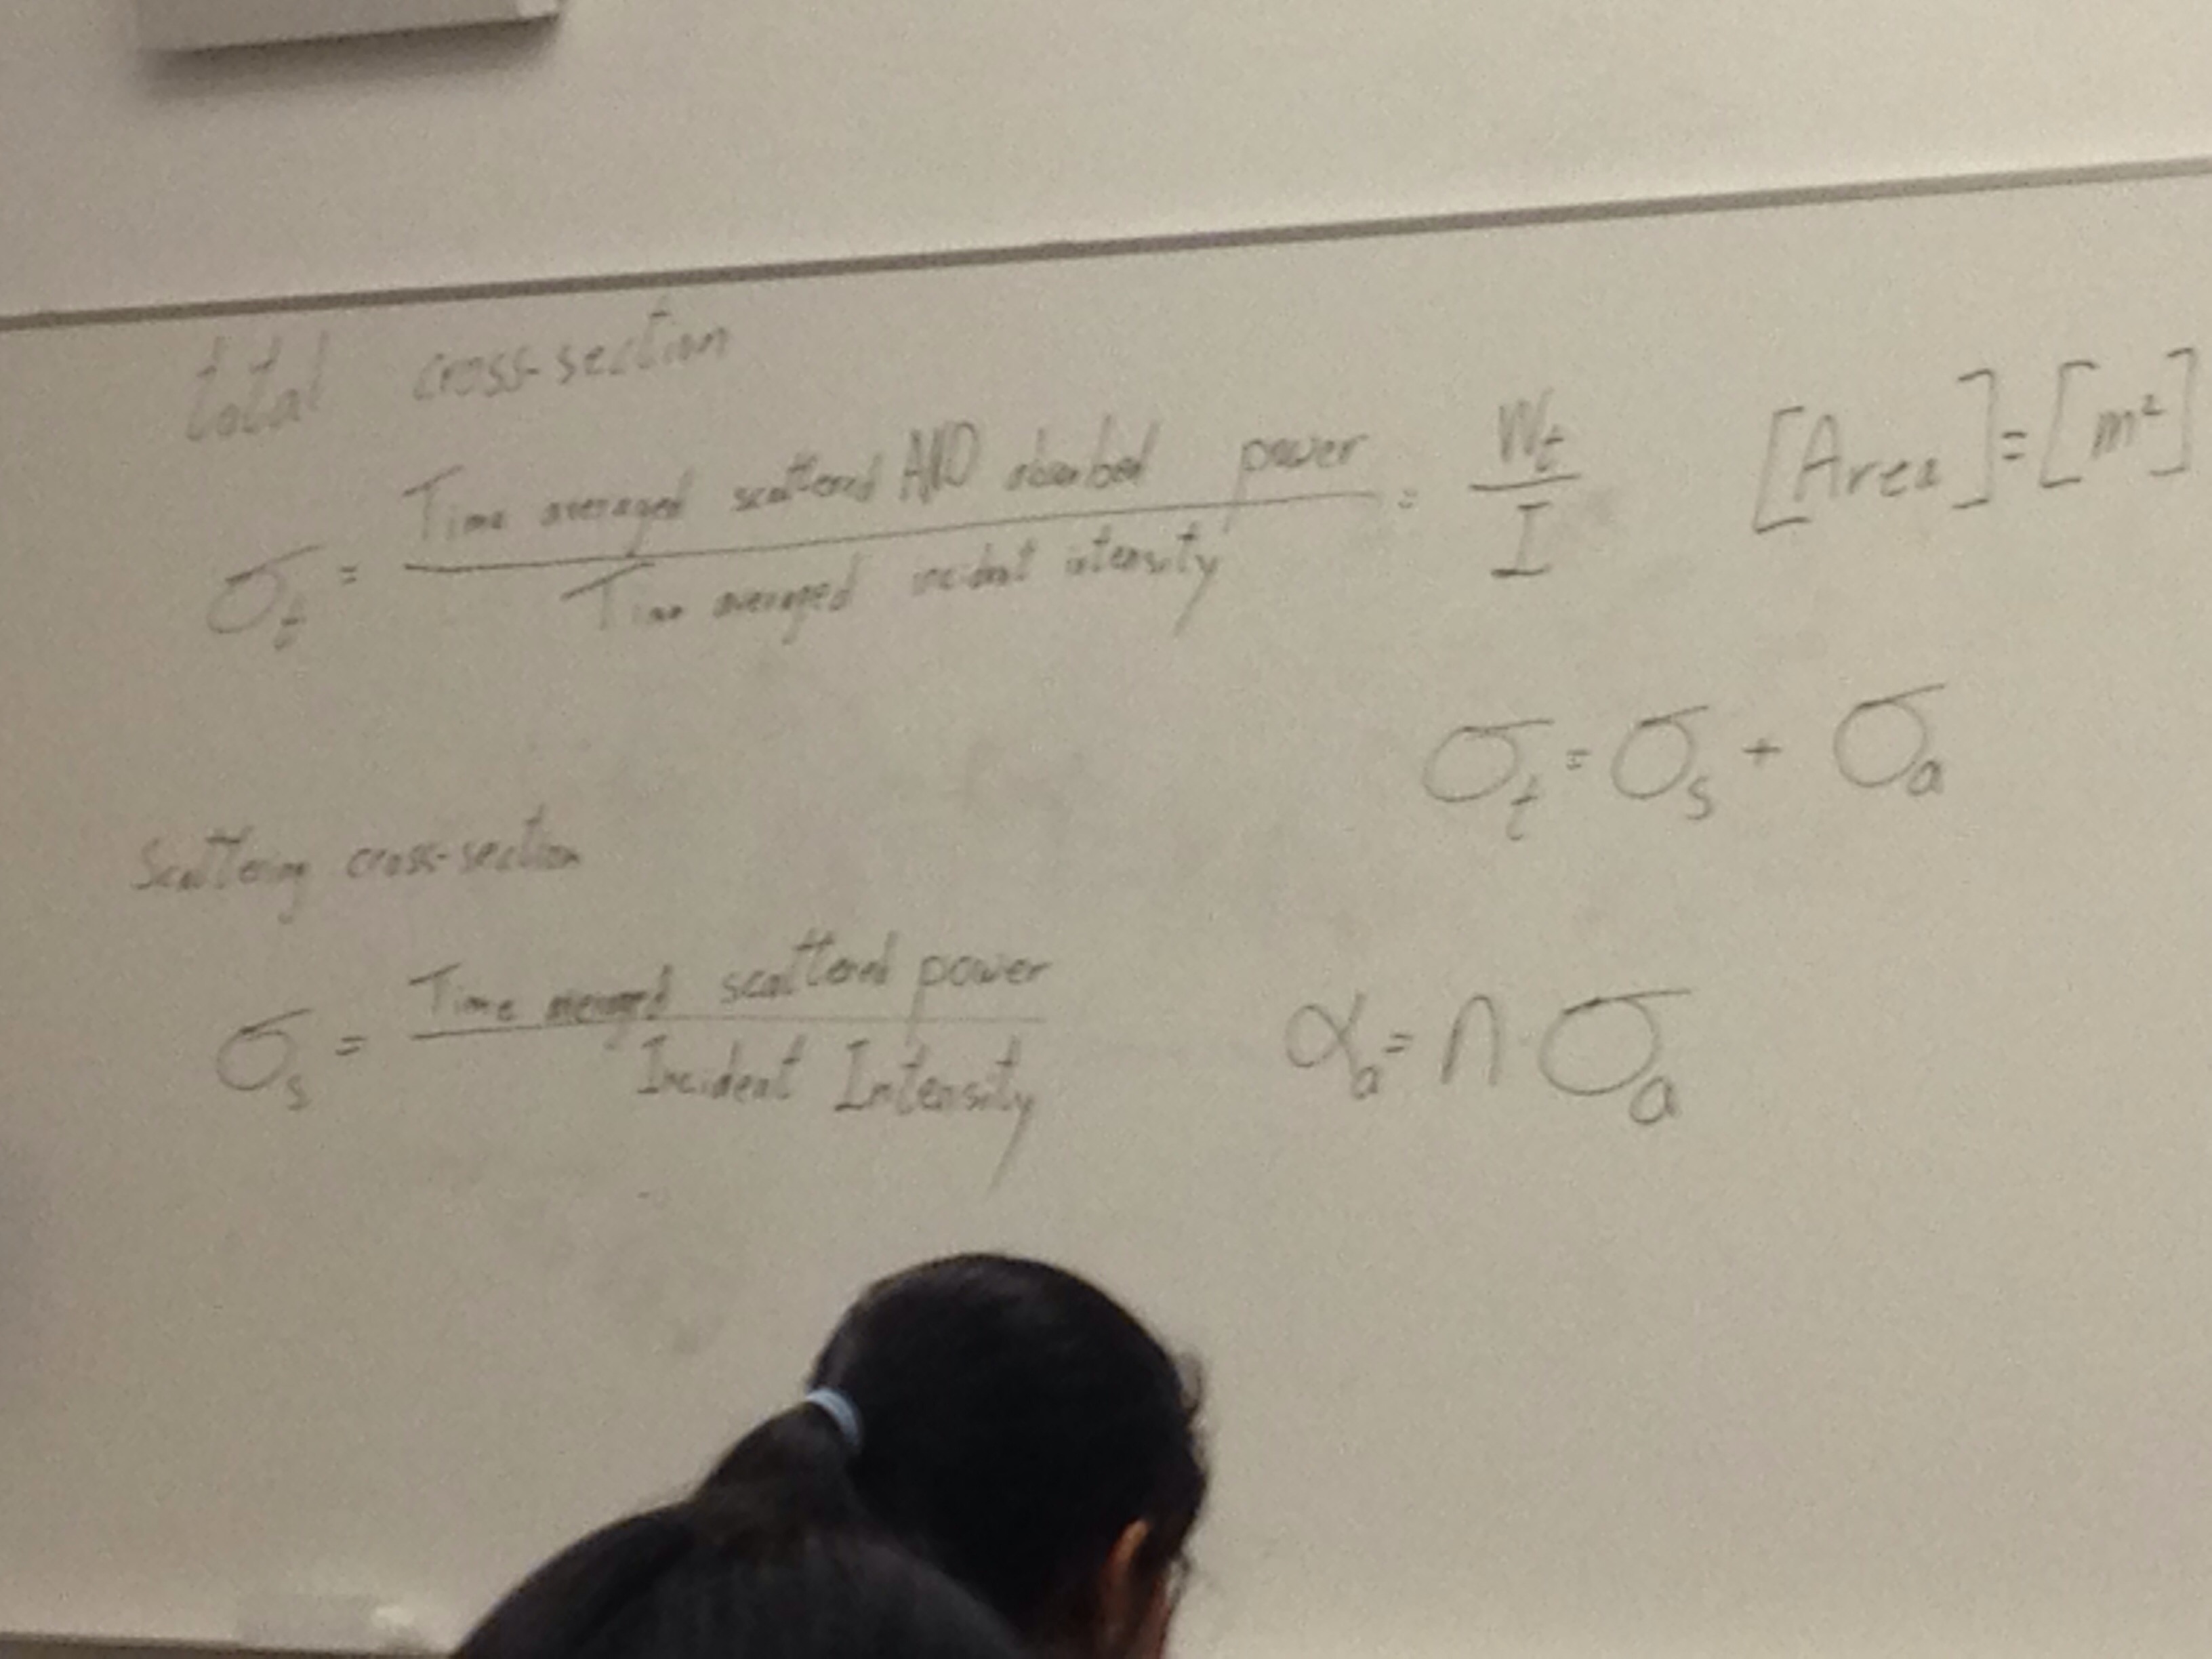 total cross-section
σ_t = Time averaged scattered AND absorbed power / Time averaged incident intensity = W_t / I [Area] = [m²]
σ_t = σ_s + σ_a
Scattering cross-section
σ_s = Time averaged scattered power / Incident Intensity
α_a = n · σ_a